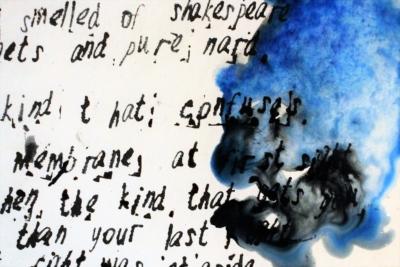 smelled of shakespeare
nets and pure nard
kind that confuses
membranes at first sight
then the kind that eats you
than your last